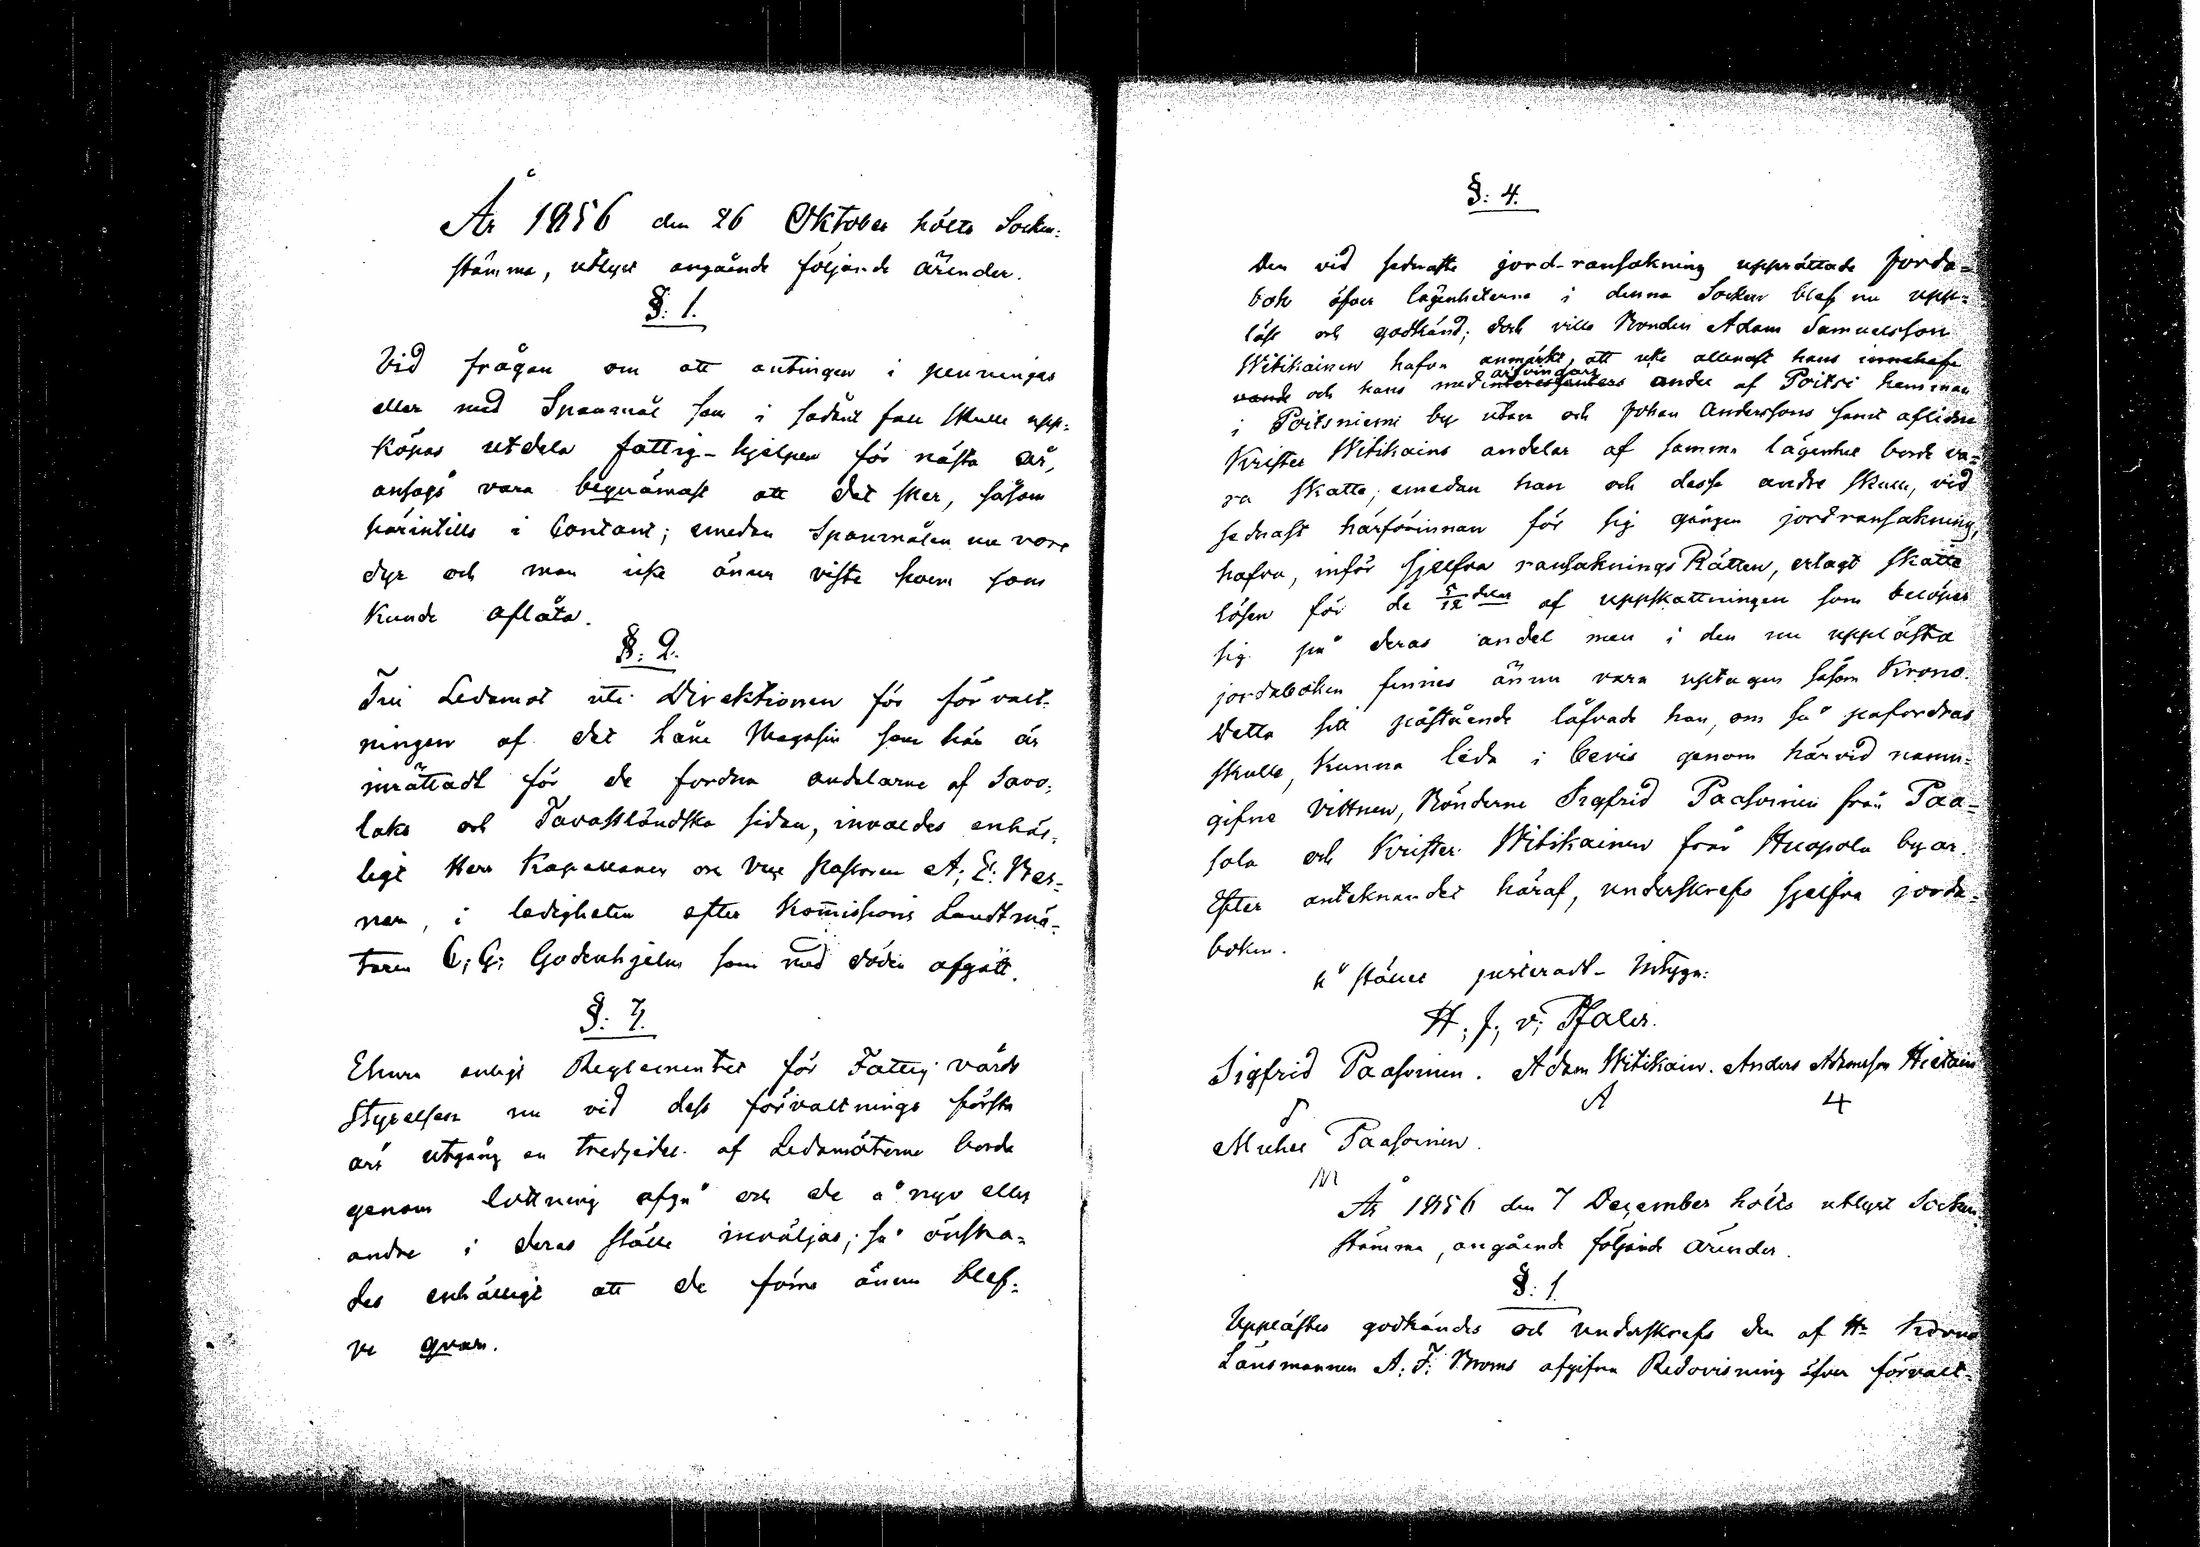 År 1856 den 26 Oktober hölts Socken:
stämma, utlyst angående följande ärender.
§: 1.
Vid frågan om att antingen i penningar
eller med Spanmål som i sådant fall skulle upp:
köpas utdela fattig-hjelpen för nästa år,
ansågs vara beqvämast att det sker, såsom
härintills i Contant; emedan Spanmålen nu vore
dyr och man icke ännu viste hvem som
kunde aflåta.
§: 2.
Till Ledamot uti Direktionen för förvalt-
ningen af det Låne Magasin som här är
inrättadt för de fordna andelarne af Savo-
laks och Tavastländska sidan, invaldes enhäl-
ligt Herr Kapellanen och Vice Pastoren A; E: Ber-
ner, i ledigheten efter Kom̄issions Landtmä-
taren C; G; Godenhjelm som med döden afgått.
§: 3.
Ehuru enligt Reglementet för Fattig vårds
Styrelsen nu vid dess förvaltnings första
års utgång en tredjedel af Ledamöterne borde
genom lottning afgå och de å nyo eller
andre i deras ställe inväljas; så önska-
des enhälligt att de förra ännu blef-
ve qvar.
§: 4.
Den vid sednaste jord-ransakning upprättade Jorda-
bok öfver lägenheterna i denna Socken blef nu upp-
läst och godkänd; doch ville Bonden Adam Samuelsson
Witikainen hafva anmärkt, att icke allenast hans innehaf
vande och hans medinteressenters arfvingars andel af Poitsi hemman
i Poitsniemi by utan och Johan Anderssons samt aflidne
Krister Witikains andelar af samma lägenhet borde va-
ra skatte, emedan han och desse andre skulle, vid
sednast härförinnan för sig gången jordransakning,
hafva, inför sjelfva ransaknings Rätten, erlagt skatte
lösen för de 5/12 delar af uppskattningen som belöper
sig på deras andel men i den nu upplästa
jordaboken finnes ännu vara upptagen såsom Krono.
Detta sitt påstående låfvade han, om så påfordras
skulle, kunna leda i bevis genom härvid namn-
gifne vittnen, Bönderne Sigfrid Paasoinen från Paa-
sola och Krister Witikainen från Huopola byar.
Efter anteknandet häraf, underskrefs sjelfva jorda-
boken.
å stället justeradt - Intyga:
H. J. v; Pfaler.
Sigfrid Paasoinen. Adam Witikain. Anders Adamsson Hietain
A 4
Michel Paasoinen.
M
År 1856 den 7 December hölts utlyst Socken-
stämma, angående följande ärender.
§: 1.
Upplästes godkändes och underskrefs den af Hr Krono
Länsmannen A: F: Broms afgifna Redovisning öfver förvalt-